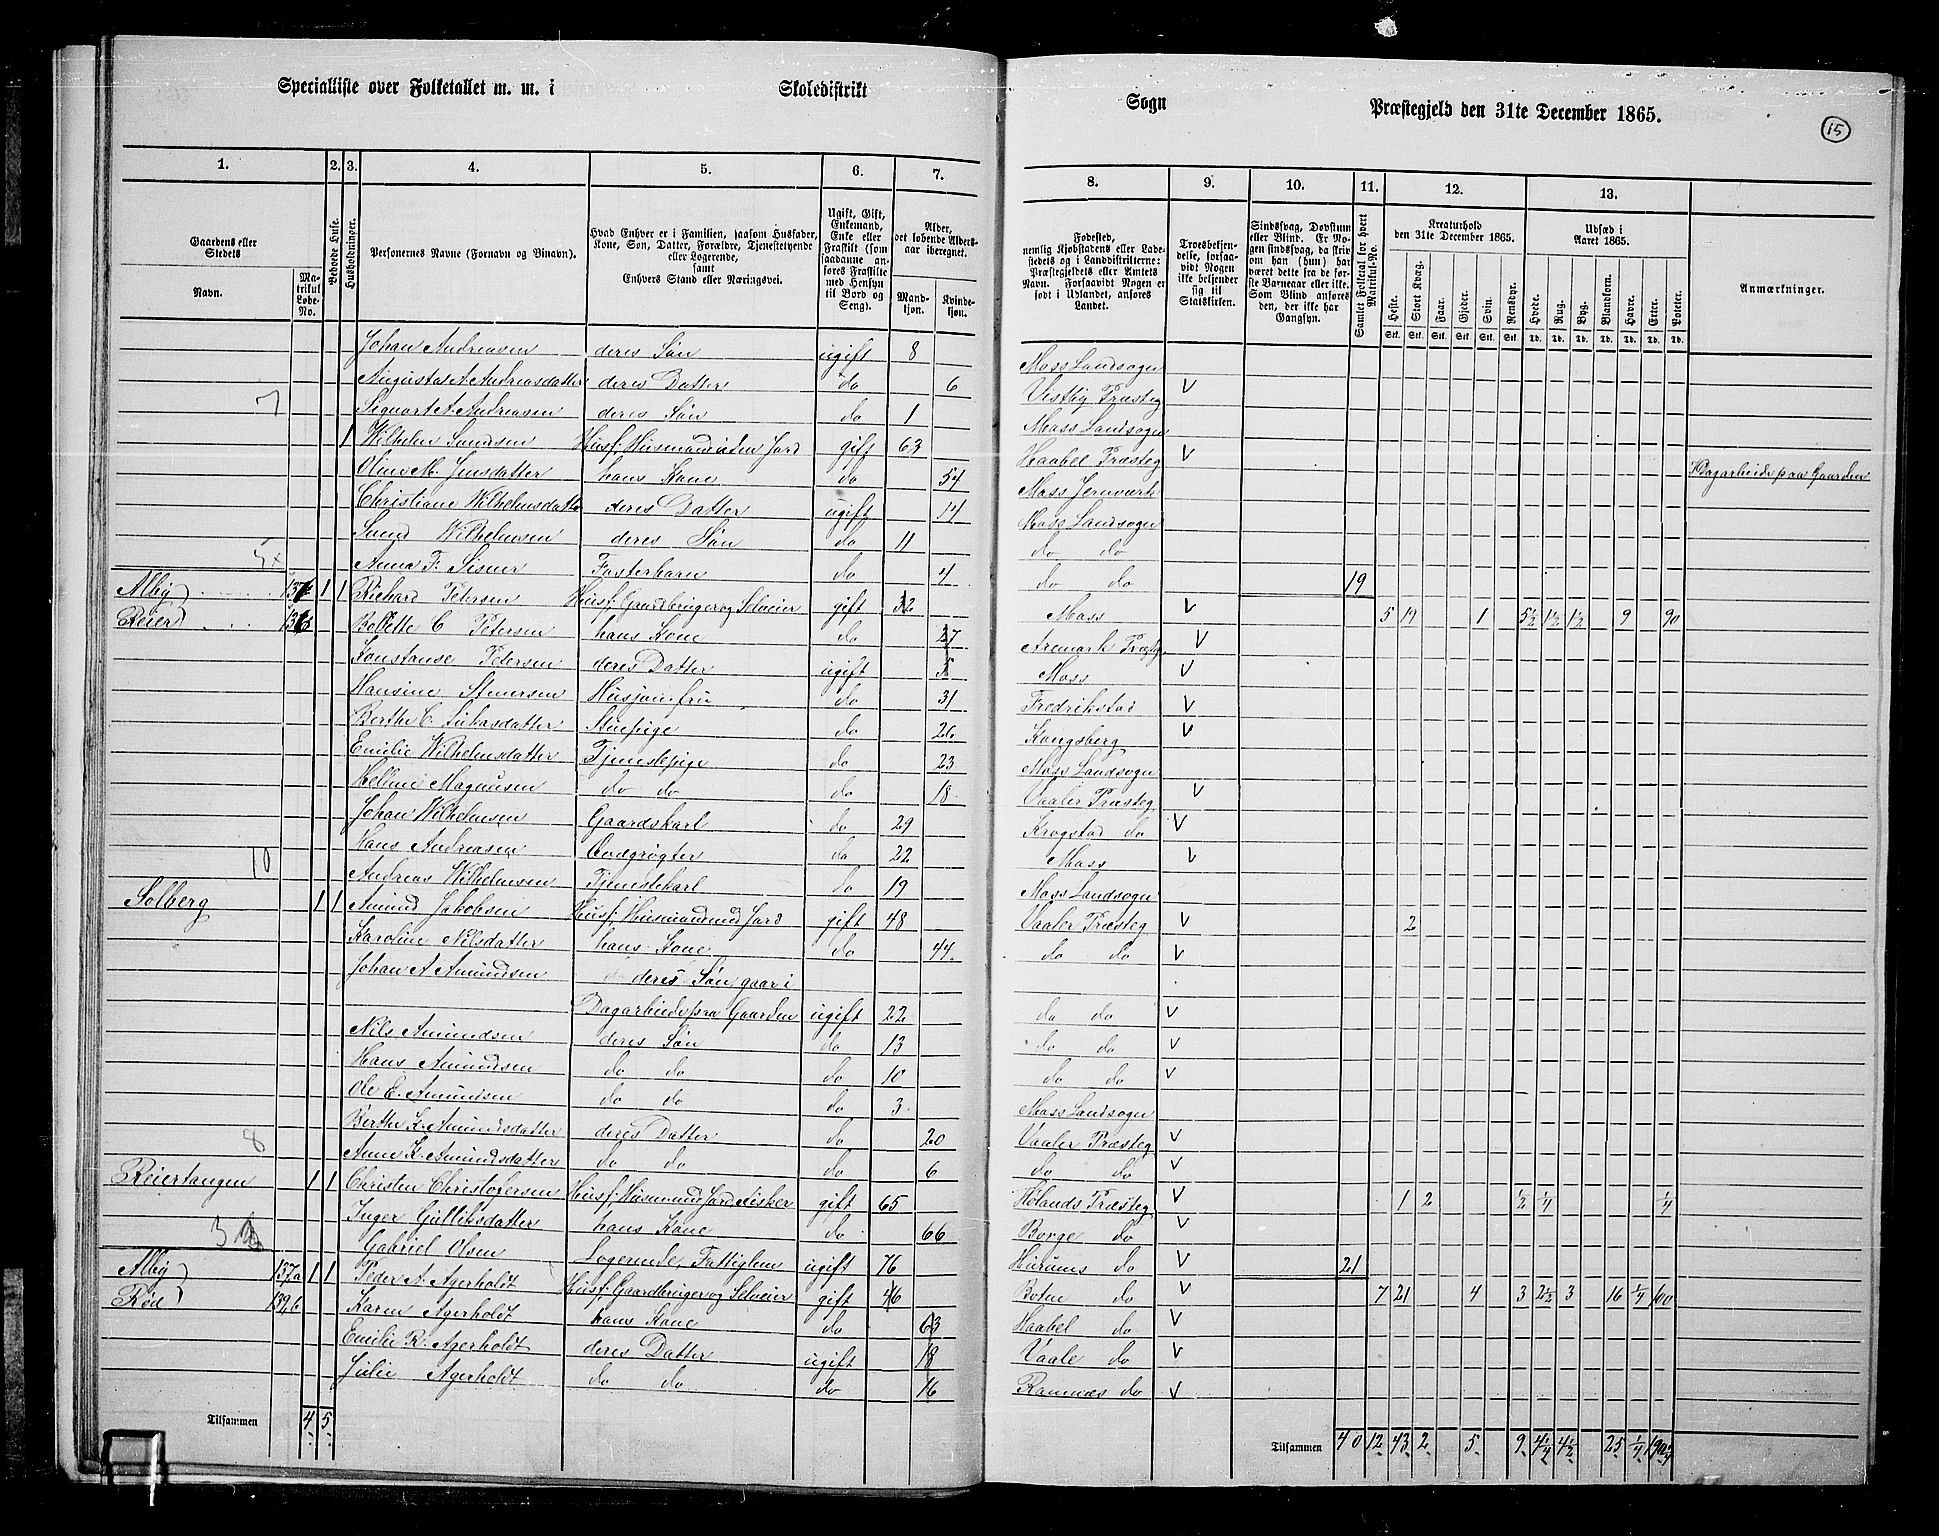 Specialliste over Folketallet m. m. i Skoledistrikt Sogn Præstegjeld den 31te December 1865.
15
1. 2. 3. 4. 5. 6. 7. 8. 9. 10. 11. 12. 13.
Gaardens eller Stedets
Navn.
Matrikul Løbe-No.
Beboede Huse.
Husholdninger.
Personernes Navne (Fornavn og Tilnavn).
Hvad Enhver er i Familien, saasom Husfader, Kone, Søn, Datter, Forældre, Tjenestetyende eller Logerende,
samt
Enhvers Stand eller Næringsvei.
Ugift, Gift, Enkemand, Enke eller Fraskilt (som saadanne anføres Fraskilte med Hensyn til Bord og Seng).
Alder, det løbende Aldersaar iberegnet.
Mandkjøn.
Kvindekjøn.
Fødested,
nemlig Kjøbstadens eller Ladestedets og i Landdistrikterne: Præstegjeldets eller Amtets Navn. Forsaavidt Nogen er født i Udlandet, anføres Landet.
Troesbekjendelse, forsaavidt Nogen ikke bekjender sig til Statskirken.
Sindssvag, Døvstum eller Blind. Er Nogen sindssvag, da skrives om han (hun) har været dette fra de første Barneaar eller ikke. Som Blind anføres den, der ikke har Gangsyn.
Samlet Folketal for hvert Matrikul-No.
Kreaturhold den 31te December 1865.
Heste. Stort Kvæg. Faar. Gjeder. Svin. Rensdyr.
Udsæd i Aaret 1865.
Hvede. Rug. Byg. Blandkorn. Havre. Erter. Poteter.
Anmærkninger.
Stk. Stk. Stk. Stk. Stk. Stk. Td. Td. Td. Td. Td. Td. Td.
Johan Andreasen deres Søn ugift 8 Moss Landsogn
Augusta A. Andreasdatter deres Datter do 6 Vestby Præsteg V
7 Siguart A. Andreasen deres Søn do 1 Moss Landsogn
1 Wilhelm Sundsen Husf: Husmand uden Jord gift 63 Haabel Præsteg V Dagarbeide paa Gaarden
Oline M. Jensdatter hans Kone do 54 Moss Jernværk
Christiane Wilhelmsdatter deres Datter ugift 14 Moss Landsogn
Sund Wilhelmsen deres Søn do 11 do do
5 Anna F. Fosterbarn do 4 do do 19
Alby 1 1 Richard Petersen Husf: Gaardbruger og Selveier gift 32 Moss V 5 19 1 5½ 1½ 1½ 9 90
Reier Bolette C Petersen hans Kone do 27 Aremark Præsteg V
Konstanse Petersen deres Datter ugift Moss V
Hansine Stenersen Husjomfru do 31 Fredrikstad V
Berthe C. Lukasdatter Stuepige do 26 Kongsberg V
Emilie Wilhelmsdatter Tjenestepige do 23 Moss Landsogn
Helline Magnusen do do do 18 Vaaler Præsteg V
Johan Wilhelmsen Gaardskarl do 29 Krogstad do V
10 Hans Andreasen Qvægrøgter do 22 Moss V
Andreas Wilhelmsen Tjenestekarl do 19 Moss Landsogn
Solberg 1 1 Amund Jakobsen Husf: Husmand med Jord gift 48 Vaaler Præsteg V 2
Karoline Nilsdatter hans Kone do 44 do do V
Johan A. Amundsen deres Søn, gaar i
Dagarbeide paa Gaarden ugift 22 do do V
Nils Amundsen deres Søn do 13 do do V
Hans Amundsen do do do 10 do do V
Ole E. Amundsen do do do 3 Moss Landsogn
8 Berthe K. Amundsdatter deres Datter do 20 Vaaler Præsteg V
Anne K. Amundsdatter do do do 6 do do V
Reiertangen 1 1 Christen Christofersen Husf: Husmand Jord Fisker gift 65 Hølands Præsteg V 1 2 ½ ¼ ¼
3 Inger Gulliksdatter hans Kone do 66 Borge do V
Gabriel Olsen Logerende, Fattiglem ugift 76 Hurums do V 21
Alby 137a 1 1 Peder A. Agerholdt Husf: Gaardbruger og Selveier gift 46 Botne do V 7 21 4 3 2½ 3 16 ¼ 100
Røe 139b Karen Agerholdt hans Kone do 63 Haabel do V
Emilie R. Agerholdt deres Datter ugift 18 Vaale do V
Julie Agerholdt do do do 16 Ramnæs do V
Tilsammen 4 5 Tilsammen 40 12 43 2 5 9 4½ 25 ¼ 190¼